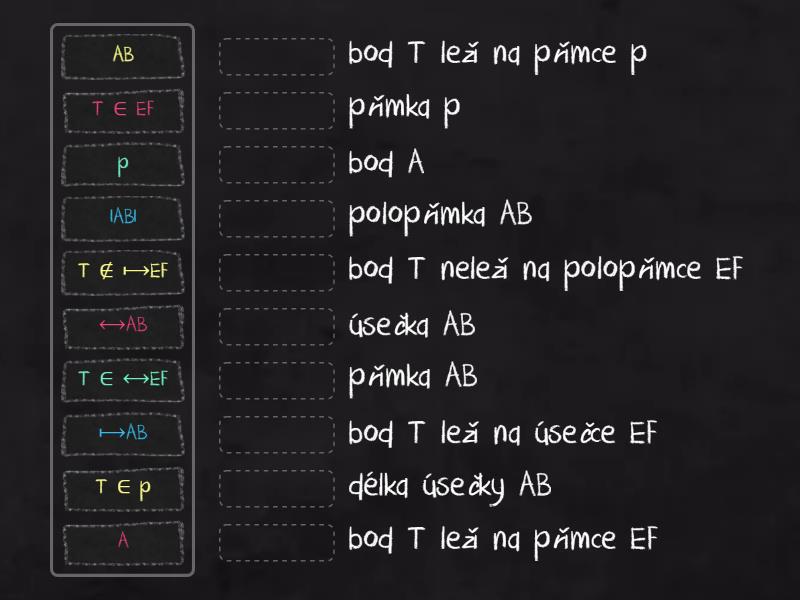 AB
bod T leží na přímce p
T ∈ EF
přímka p
p
bod A
|AB|
polopřímka AB
T ∉ ↦EF
bod T neleží na polopřímce EF
↔AB
úsečka AB
T ∈ ↔EF
přímka AB
↦AB
bod T leží na úsečce EF
T ∈ p
délka úsečky AB
A
bod T leží na přímce EF